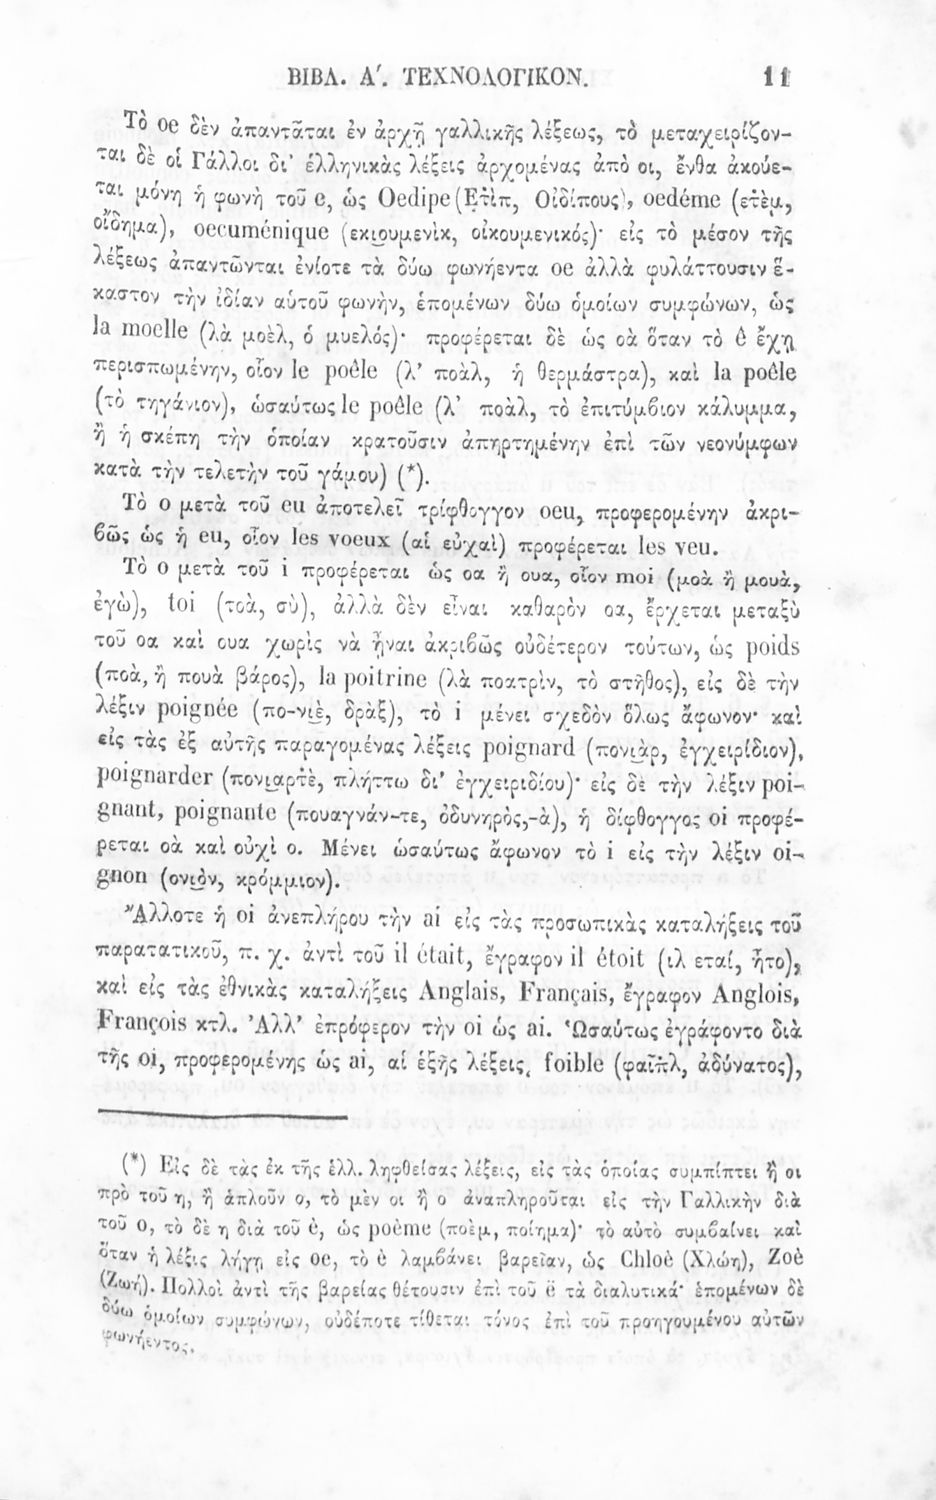 ΒΙΒΛ. Α΄. ΤΕΧΝΟΛΟΓΙΚΟΝ. 11
Τὸ oe δὲν ἀπαντᾶται ἐν ἀρχῇ γαλλικῆς λέξεως, τὸ μεταχειρίζον-
ται δὲ οἱ Γάλλοι δι' ἑλληνικὰς λέξεις ἀρχομένας ἀπὸ οι, ἔνθα ἀκούε-
ται μόνη ἡ φωνὴ τοῦ e, ὡς Oedipe (Ετὶπ, Οἰδίπους), oedéme (ετὲμ,
οἴδημα), oecuménique (εκιουμενὶκ, οἰκουμενικός)· εἰς τὸ μέσον τῆς
λέξεως ἀπαντῶνται ἐνίοτε τὰ δύω φωνήεντα oe ἀλλὰ φυλάττουσιν ἕ-
καστον τὴν ἰδίαν αὑτοῦ φωνὴν, ἑπομένων δύω ὁμοίων συμφώνων, ὡς
la moelle (λὰ μοὲλ, ὁ μυελός)· προφέρεται δὲ ὡς οὰ ὅταν τὸ ê ἔχῃ
περισπωμένην, οἷον le poêle (λ' ποὰλ, ἡ θερμάστρα), καὶ la poêle
(τὸ τηγάνιον), ὡσαύτως le poêle (λ' ποὰλ, τὸ ἐπιτύμβιον κάλυμμα,
ἢ ἡ σκέπη τὴν ὁποίαν κρατοῦσιν ἀπηρτημένην ἐπὶ τῶν νεονύμφων
κατὰ τὴν τελετὴν τοῦ γάμου) (*).
Τὸ o μετὰ τοῦ eu ἀποτελεῖ τρίφθογγον oeu, προφερομένην ἀκρι-
βῶς ὡς ἡ eu, οἷον les voeux (αἱ εὐχαὶ) προφέρεται les veu.
Τὸ o μετὰ τοῦ i προφέρεται ὡς οα ἢ ουα, οἷον moi (μοὰ ἢ μουὰ,
ἐγὼ), toi (τοὰ, σὺ), ἀλλὰ δὲν εἶναι καθαρὸν οα, ἔρχεται μεταξὺ
τοῦ οα καὶ ουα χωρὶς νὰ ἦναι ἀκριβῶς οὐδέτερον τούτων, ὡς poids
(ποὰ, ἢ πουὰ βάρος), la poitrine (λὰ ποατρὶν, τὸ στῆθος), εἰς δὲ τὴν
λέξιν poignée (πο-νιὲ, δρὰξ), τὸ i μένει σχεδὸν ὅλως ἄφωνον· καὶ
εἰς τὰς ἐξ αὐτῆς παραγομένας λέξεις poignard (πονιὰρ, ἐγχειρίδιον),
poignarder (πονιαρτὲ, πλήττω δι' ἐγχειριδίου)· εἰς δὲ τὴν λέξιν poi-
gnant, poignante (πουαγνάν-τε, ὀδυνηρὸς,-ὰ), ἡ δίφθογγος oi προφέ-
ρεται οὰ καὶ οὐχὶ ο. Μένει ὡσαύτως ἄφωνον τὸ i εἰς τὴν λέξιν oi-
gnon (ονιὸν, κρόμμιον).
Ἄλλοτε ἡ oi ἀνεπλήρου τὴν ai εἰς τὰς προσωπικὰς καταλήξεις τοῦ
παρατατικοῦ, π. χ. ἀντὶ τοῦ il était, ἔγραφον il étoit (ιλ εταί, ἦτο),
καὶ εἰς τὰς ἐθνικὰς καταλήξεις Anglais, Français, ἔγραφον Anglois,
François κτλ. Ἀλλ' ἐπρόφερον τὴν oi ὡς ai. Ὡσαύτως ἐγράφοντο διὰ
τῆς oi, προφερομένης ὡς ai, αἱ ἑξῆς λέξεις, foible (φαῖπλ, ἀδύνατος),
(*) Εἰς δὲ τὰς ἐκ τῆς ἑλλ. ληφθείσας λέξεις, εἰς τὰς ὁποίας συμπίπτει ἢ οι
πρὸ τοῦ η, ἢ ἁπλοῦν ο, τὸ μὲν οι ἢ ο ἀναπληροῦται εἰς τὴν Γαλλικὴν διὰ
τοῦ o, τὸ δὲ η διὰ τοῦ è, ὡς poème (ποὲμ, ποίημα)· τὸ αὐτὸ συμβαίνει καὶ
ὅταν ἡ λέξις λήγῃ εἰς oe, τὸ è λαμβάνει βαρεῖαν, ὡς Chloè (Χλώη), Zoè
(Ζωή). Πολλοὶ ἀντὶ τῆς βαρείας θέτουσιν ἐπὶ τοῦ ë τὰ διαλυτικά· ἑπομένων δὲ
δύω ὁμοίων συμφώνων, οὐδέποτε τίθεται τόνος ἐπὶ τοῦ προηγουμένου αὐτῶν
φωνήεντος.